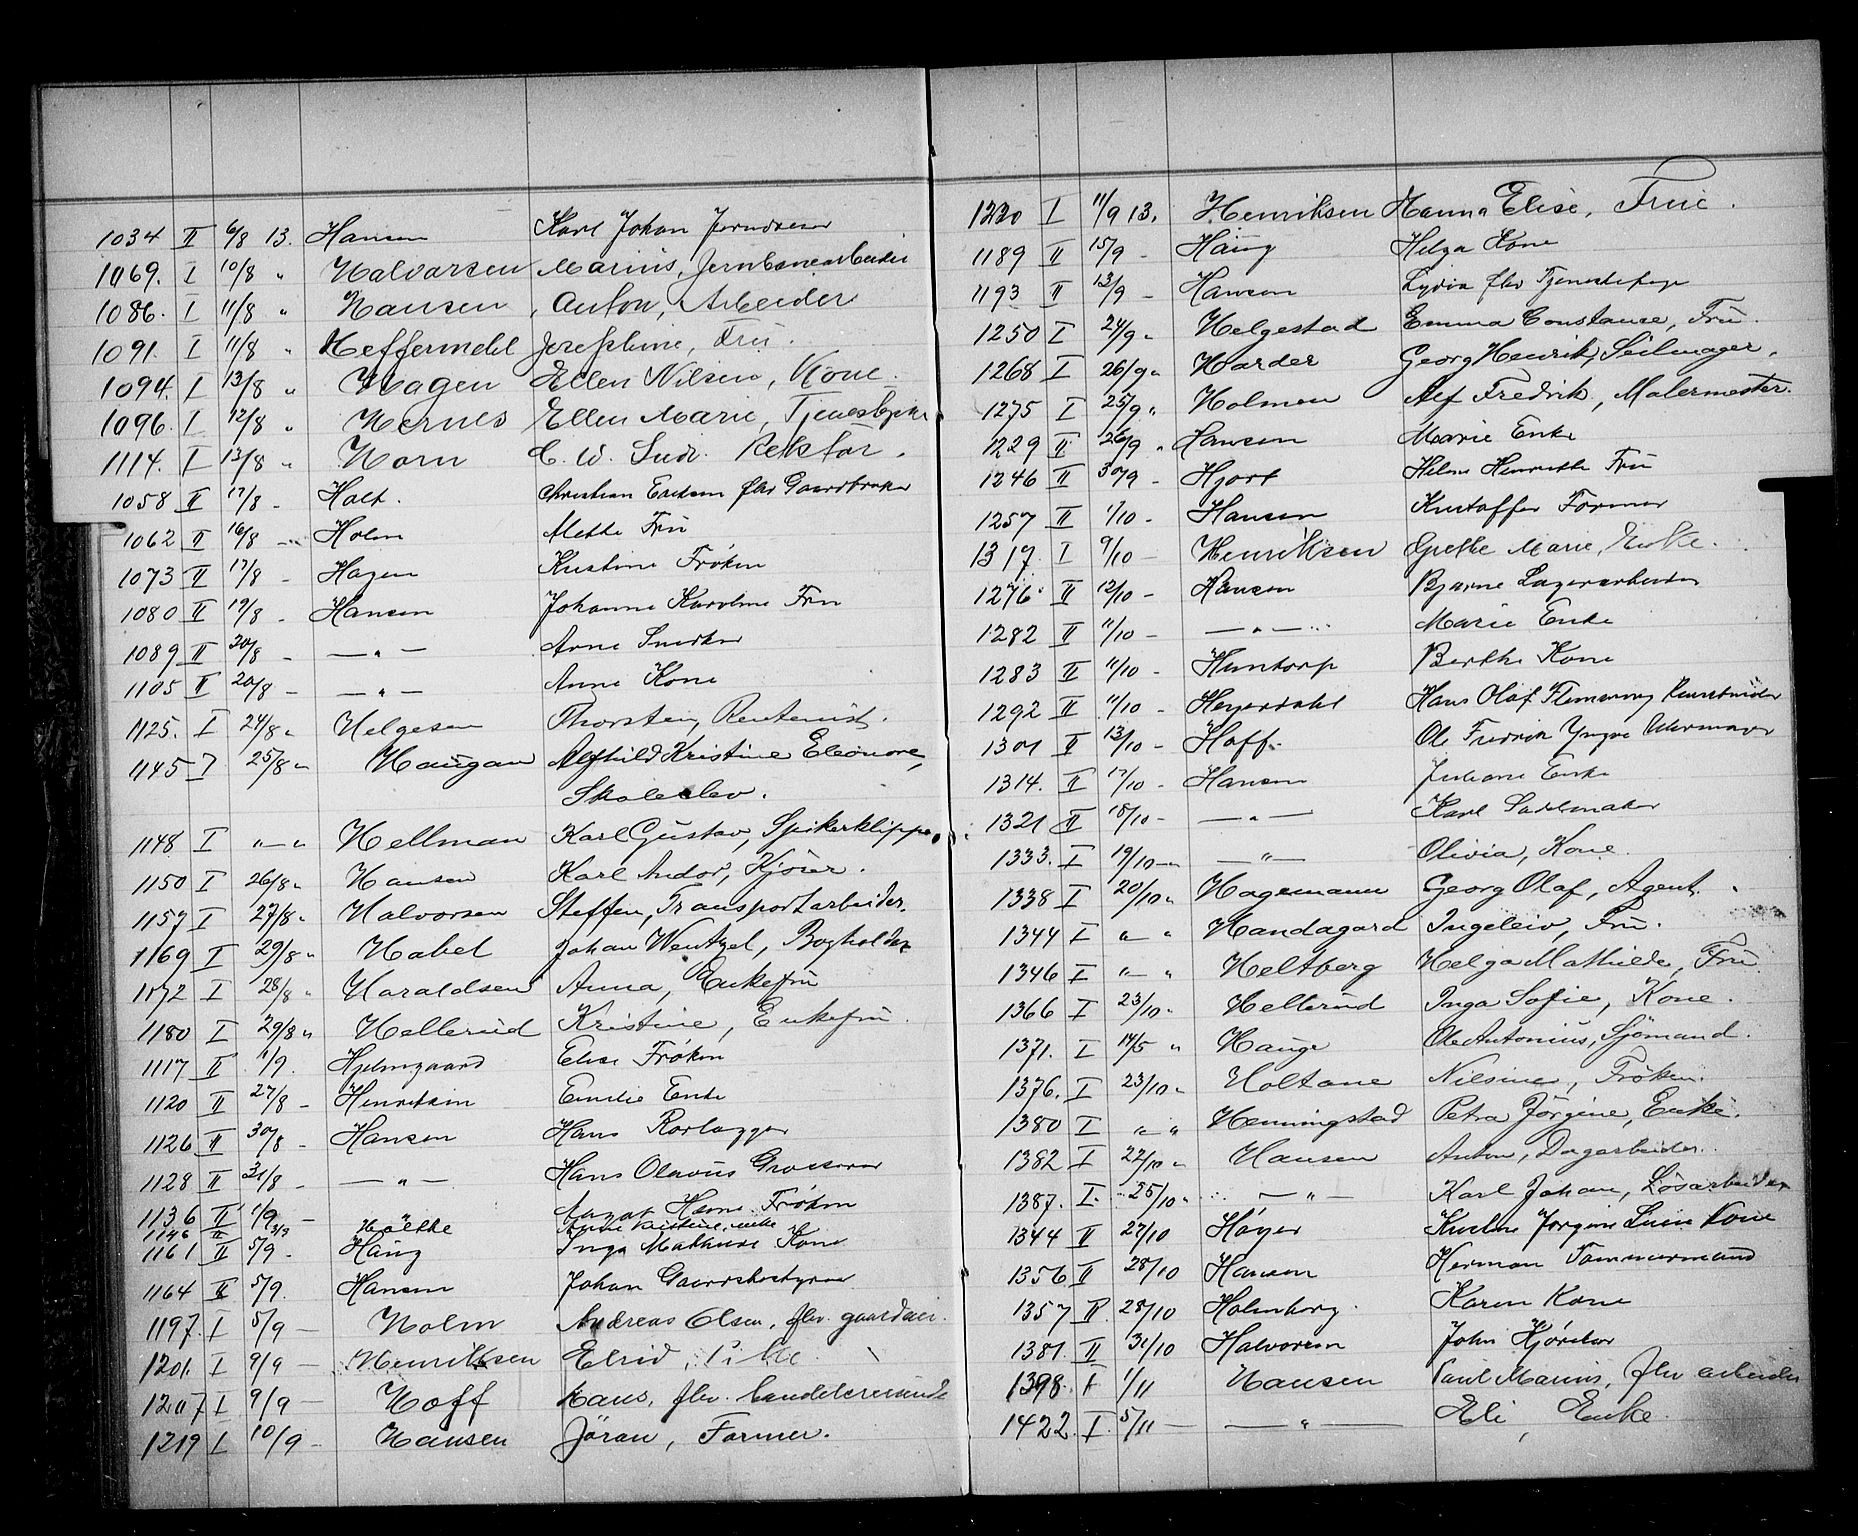 1034 II 6/8 13. Hansen Karl Johan
1069. I 10/8 " Halvorsen Marius, Jernbanearbeider
1086. I 11/8 " Hansen, Anton, Arbeider
1091. I 11/8 " Heffermehl Josephine, Fru.
1094. I 13/8 " Hagen Ellen Nilsen, Kone.
1096. I 12/8 " Hernes Ellen Marie,
1114. I 13/8 " Horn C. W. Ludv. Rektor.
1058 II 17/8 - Holt. Christian flv Gaardbruker
1062 II 16/8 - Holm Mette Fru
1073 II 17/8 - Hagen Kristine Frøken
1080 II 19/8 - Hansen Johanne Karoline Fru
1089 II 20/8 - — " — Arne Snedker
1105 II 20/8 - — " — Anne Kone
1125. I 24/8 " Helgesen Thorsten, Rentenist.
1145 I 25/8 " Haugan Alfhild Kristine Eleonore,
Skoleelev.
1148 I " — " Hellman Karl Gustav, Spikerklipper
1150 I 26/8 " Hansen Karl Andor, Kjører.
1157 I 27/8 " Halvorsen Steffen, Transportarbeider.
1169 I 29/8 " Habel Johan Wentzel, Bogholder
1172 I 28/8 " Haraldsen Anna, Enkefru
1180 I 29/8 " Hellerud Kristine, Enkefru.
1117 II 1/9. Hjelmgaard Elise Frøken
1120 II 27/8 - Henriksen Emilie Enke
1126 II 30/8 - Hansen Hans Rørlægger
1128 II 31/8 - — " — Hans Olavus Grosserer
1136 II 1/9 - Hanna Frøken
1146 II 3/9 Anne Kristine, enke
1161 II 5/9 - Haug Inga Mathilde Kone
1164 II 5/9. Hansen Johan Gaardsbestyrer
1197. I 5/9 — Holm Andreas Olsen, flv. gaardeier.
1201. I 9/9 — Henriksen Elrid, Pike
1207 I 9/9 — Hoff Hans, flv. handelsreisende
1219 I 10/9 - Hansen Jöran, Former.
1220 I 11/9 13. Henriksen Hanna Elise, Frue.
1189 II 15/9 - Haug Helga Kone
1193 II 13/9 - Hansen Lydia flv Tjenestepige
1250 I 24/9 " Helgestad Emma Constance, Fru.
1268 I 26/9 " Harder Georg Henrik, Seilmager.
1275 I 25/9 " Holmen Alf Fredrik, Malermester.
1229 II 26/9 " Hansen Marie Enke
1246 II 30/9 - Hjort Helene Henriette Fru
1257 II 1/10 - Hansen Kristoffer Former
1317. I 9/10 — Henriksen Grethe Marie, Enke.
1276 II 12/10 - Hansen Bjarne Lagerarbeider
1282 II 11/10 - — " — Marie Enke
1283 II 11/10 - Huntorp Berthe Kone
1292 II 11/10 - Heyerdahl Hans Olaf Flemming
1301 II 13/10 - Hoff. Ole Fredrik Yngve Uhrmager
1314. II 17/10 - Hansen Juliane Enke
1321 II 18/10 - — " — Karl Sadelmaker
1333. I 19/10 - — " — Olivia, Kone.
1338 I 20/10 " Hagemann Georg Olaf, Agent.
1344 I " " Handagard Ingeleiv, Fru.
1346 I " — " Heltberg Helga Mathilde, Fru.
1366 I 23/10 " Hellerud Inga Sofie, Kone.
1371. I 14/5 " Hauge Ole Antonius, Sjömand.
1376. I 23/10 " Holtane Nilsine, Frøken.
1380 I " " Henningstad Petra Jørgine, Enke.
1382 I 22/10 " Hansen Anton, Dagarbeider.
1387. I. 25/10 " — " — Karl Johan, Løsarbeider
1344 II 27/10 Høyer Jørgine Lucie Kone
1356 II 28/10 Hansen Herman Tømmermand
1357 II 28/10 Holmberg. Karen Kone
1381 II 31/10 Halvorsen John
1398. I 1/11 Hansen Paul Marius, flv arbeider
1422. I. 5/11 — — " — Eli, Enke.